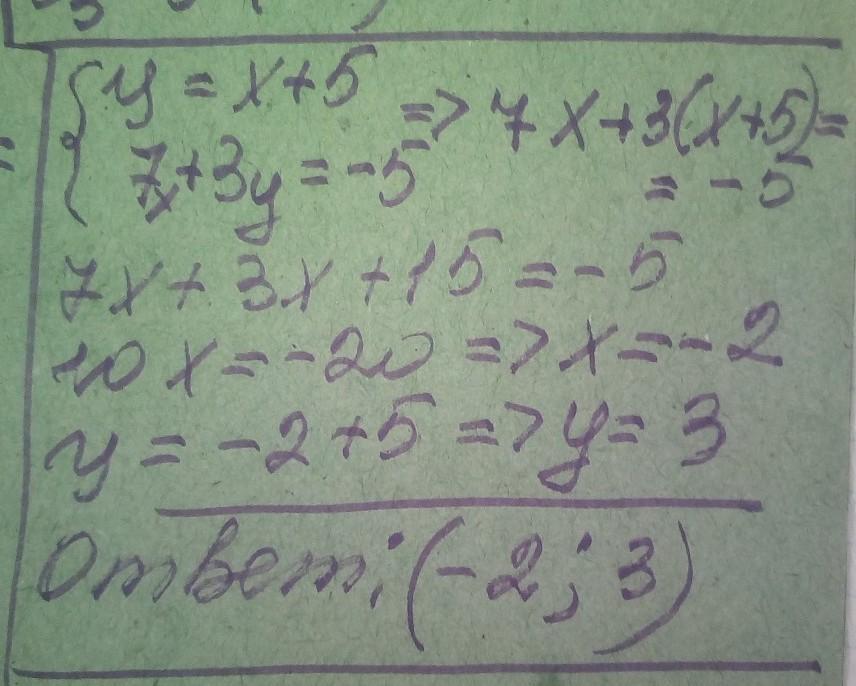 y = x+5
=> 7x+3(x+5)=
7x+3y = -5
= -5
7x+3x+15=-5
10x=-20 => x=-2
y = -2+5 => y= 3
Ответ: (-2; 3)